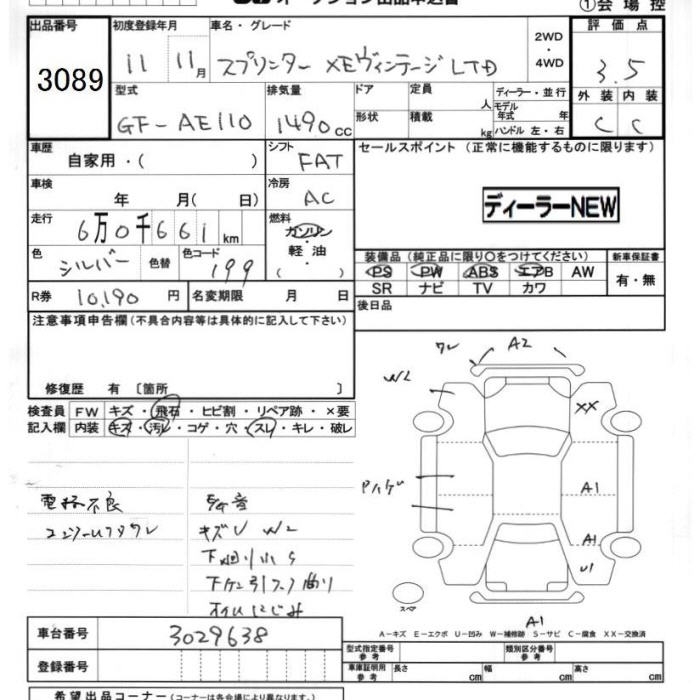 オークション出品申込書
①会場控
出品番号 初度登録年月 車名・グレード 2WD・4WD 評価点
3089 11 11月 スプリンター XEヴィンテージLTD 3.5
型式 排気量 ドア 定員 人 ディーラー・並行 外装 内装
GF-AE110 1490cc 形状 積載 kg モデル年式 年 ハンドル 左・右 C C
車歴 自家用・( ) シフト FAT セールスポイント(正常に機能するものに限ります)
車検 年 月(日) 冷房 AC ディーラーNEW
走行 6万0千661km 燃料 ガソリン 軽油 ( )
色 シルバー 色替 色コード 199
装備品(純正品に限り○をつけてください) 新車保証書
PS PW ABS エアB AW 有・無
SR ナビ TV カワ
R券 10,190円 名変期限 月 日 後日品
注意事項申告欄(不具合内容等は具体的に記入して下さい)
修復歴 有 〔箇所 〕
検査員 FW キズ・飛石・ヒビ割・リペア跡・×要
記入欄 内装 キズ・汚レ・コゲ・穴・スレ・キレ・破レ
ワレ A2
W2 XX
Pハゲ A1
A1
U1
スペア
A1
電格不良
キズU W2
下廻り小S
下ケン引フック曲り
オイルにじみ
A－キズ E－エクボ U－凹み W－補修跡 S－サビ C－腐食 XX－交換済
車台番号 3029638
型式指定番号 参考 類別区分番号 参考
登録番号 車庫証明用 参考 長さ cm 幅 cm 高さ cm
希望出品コーナー(コーナーは各会場により異なります)